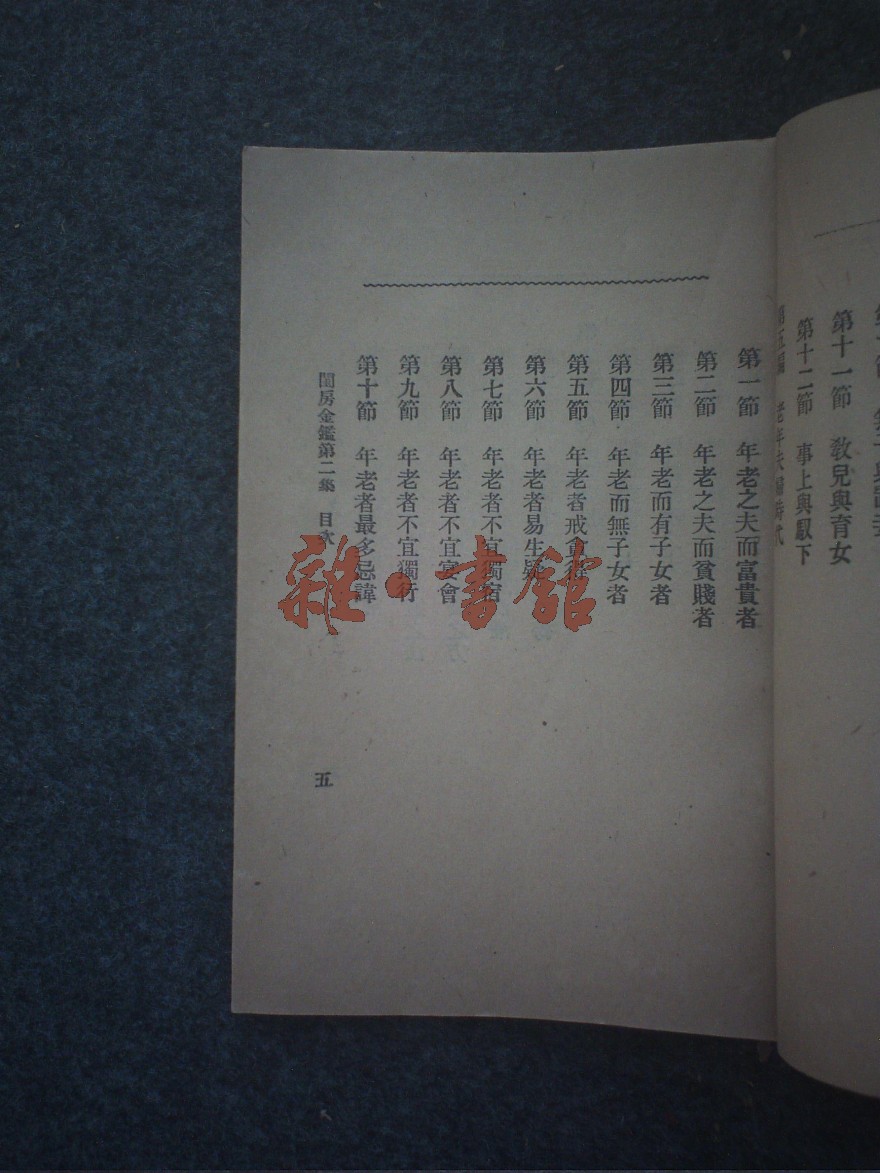 第十一節 教兒與育女
第十二節 事上與馭下
第一節 年老之夫而富貴者
第二節 年老之夫而貧賤者
第三節 年老而有子女者
第四節 年老而無子女者
第五節 年老者戒貪得
第六節 年老者易生疑
第七節 年老者不宜獨宿
第八節 年老者不宜宴會
第九節 年老者不宜獨行
第十節 年老者最多忌諱
閨房金鑑第二集 目次
五
雜·書館